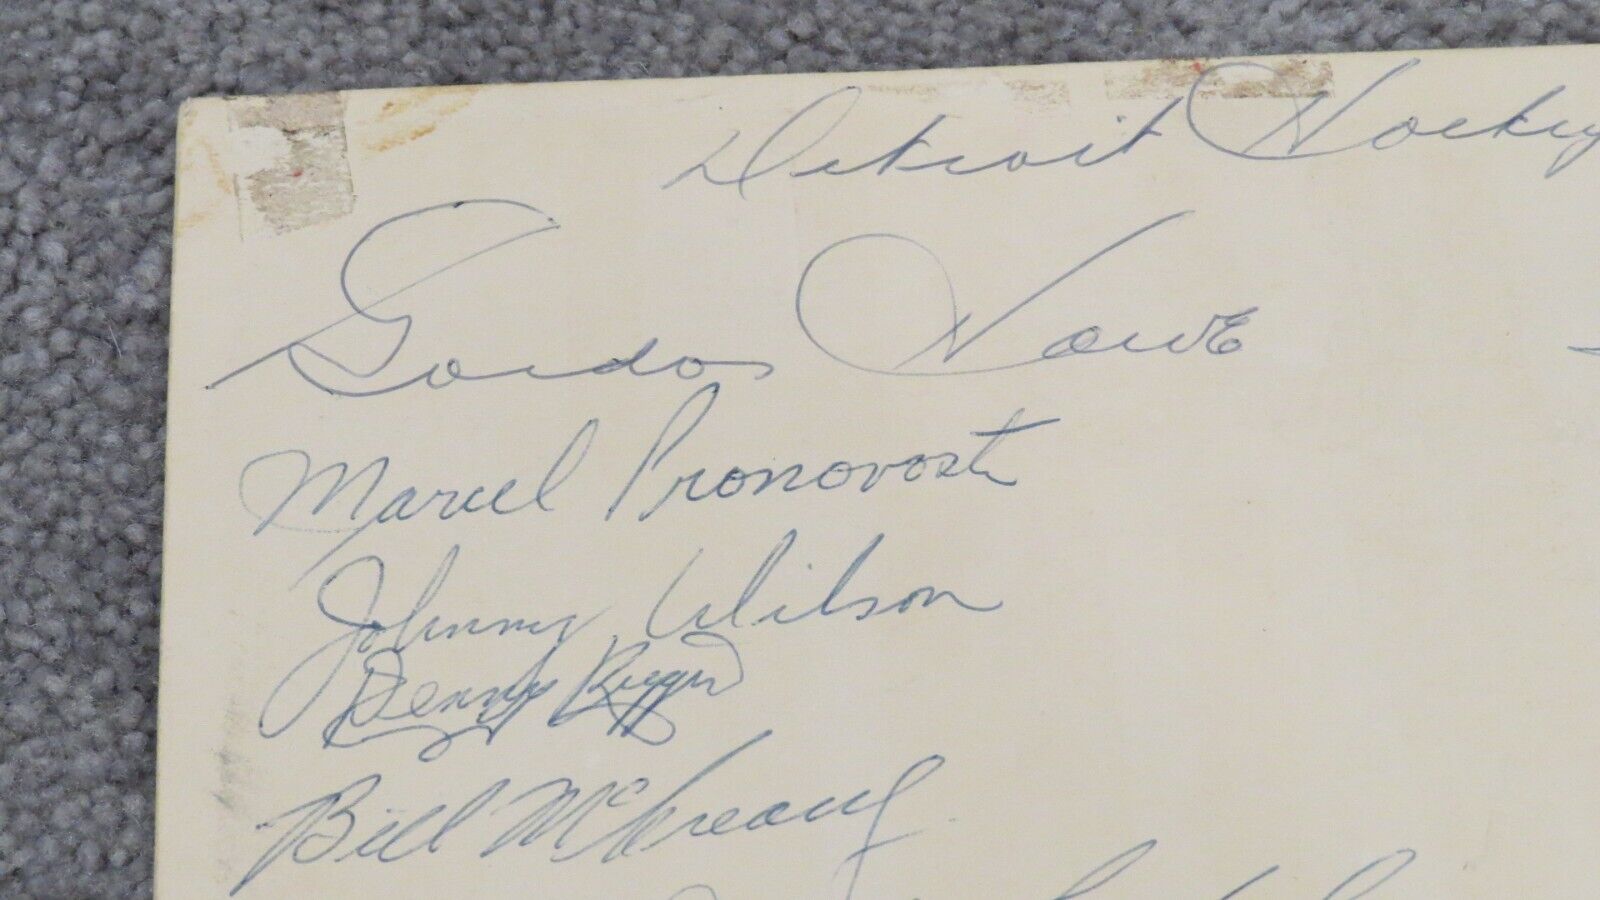 Detroit Hockey
Gordon Howe
Marcel Pronovost
Johnny Wilson
Denny Riggin
Bill McCreary